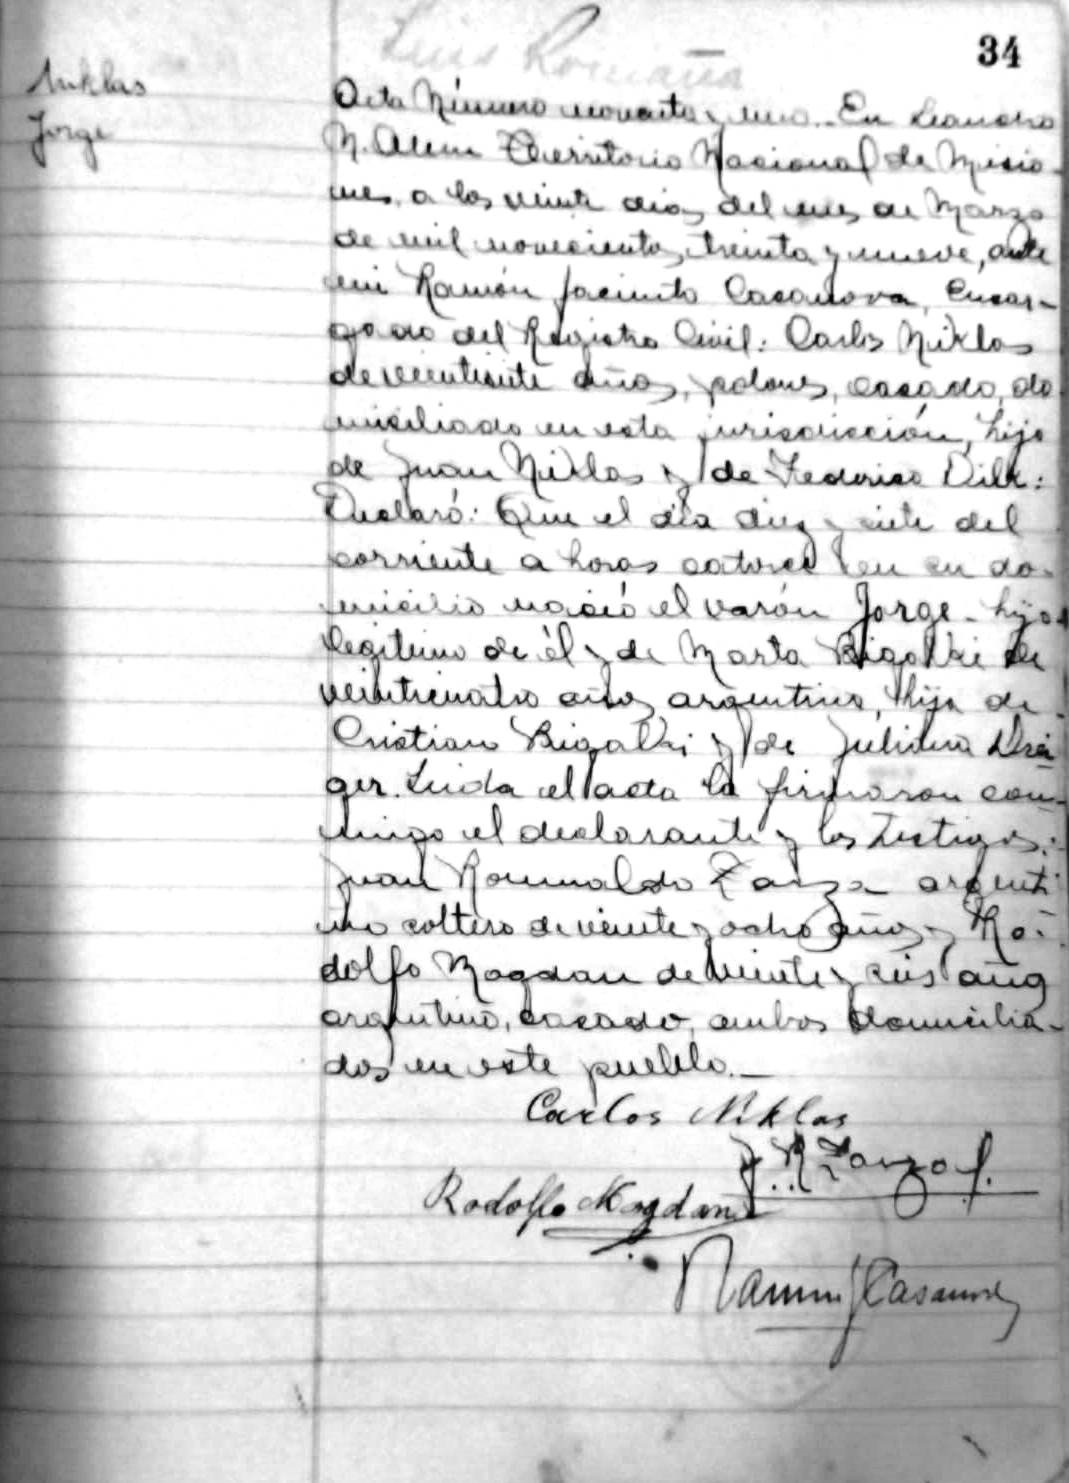 Luis Romaña
34
Niklas
Jorge
Acta Número noventa y uno.- En Leandro
N. Alem Territorio Nacional de Misio-
nes, a los veinte dias del mes de Marzo
de mil novecientos treinta y nueve, ante
mi Ramón Jacinto Casanova, Encar-
gado del Registro Civil: Carlos Niklas
de veintisiete años, polones, casado, do-
miciliado en esta jurisdicción, hijo
de Juan Niklas y de Federica Dilk:
Declaró: Que el dia diez y siete del
corriente a horas catorce en su do-
micilio nació el varón Jorge - hijo
legitimo de él y de Marta Bigalki de
veinticuatro años, argentina, hija de
Cristian Bigalki y de Juliana Drä-
ger. Leida el acta la firmaron con-
migo el declarante y los testigos:
Juan Romualdo Zarza argenti-
no soltero de veinte y ocho años y Ro-
dolfo Magdan de veinte y seis años
argentino, casado, ambos domicilia-
dos en este pueblo.-
Carlos Niklas
J. R. Zarza
Rodolfo Magdan
Ramon J Casanova